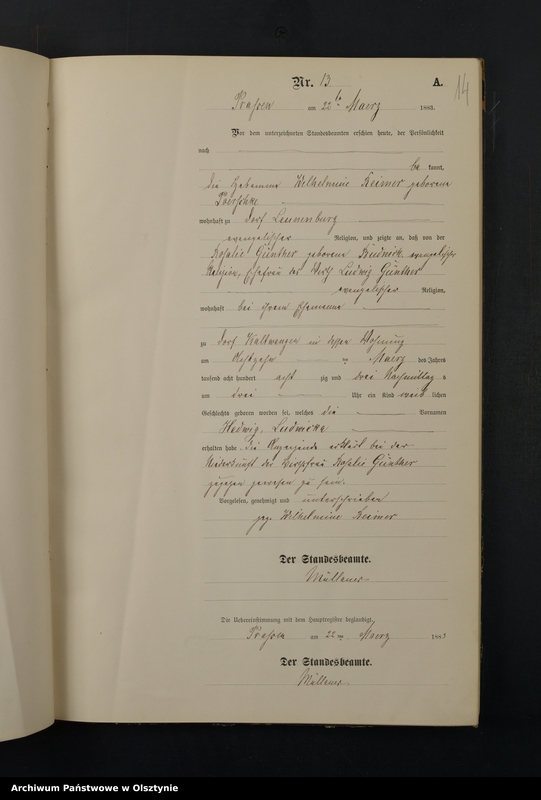 Nr. 13 A.
14
Prassen am 22ten Maerz 1883.
Vor dem unterzeichneten Standesbeamten erschien heute, der Persönlichkeit
nach
be kannt,
die Hebamme Wilhelmine Reimer geborene
wohnhaft zu Dorf Leunenburg
evangelischer Religion, und zeigte an, daß von der
Rosalie Günther geborene Rudnick, evangelischer
Religion, Ehefrau des Ludwig Günther
evangelischer Religion,
wohnhaft bei ihrem Ehemanne
zu Dorf Kaltwangen in dessen Wohnung
am ten Maerz des Jahres
tausend acht hundert acht zig und drei Nachmittag s
um drei Uhr ein Kind weib lichen
Geschlechts geboren worden sei, welches die Vornamen
Hedwig, Ludwicka
erhalten habe. Die Anzeigende erklärt bei der
Niederkunft der Rosalie Günther
zugegen gewesen zu sein.
Vorgelesen, genehmigt und unterschrieben
gez. Wilhelmine Reimer
Der Standesbeamte.
Die Uebereinstimmung mit dem Hauptregister beglaubigt,
Prassen am 22ten Maerz 1883
Der Standesbeamte.
Archiwum Państwowe w Olsztynie